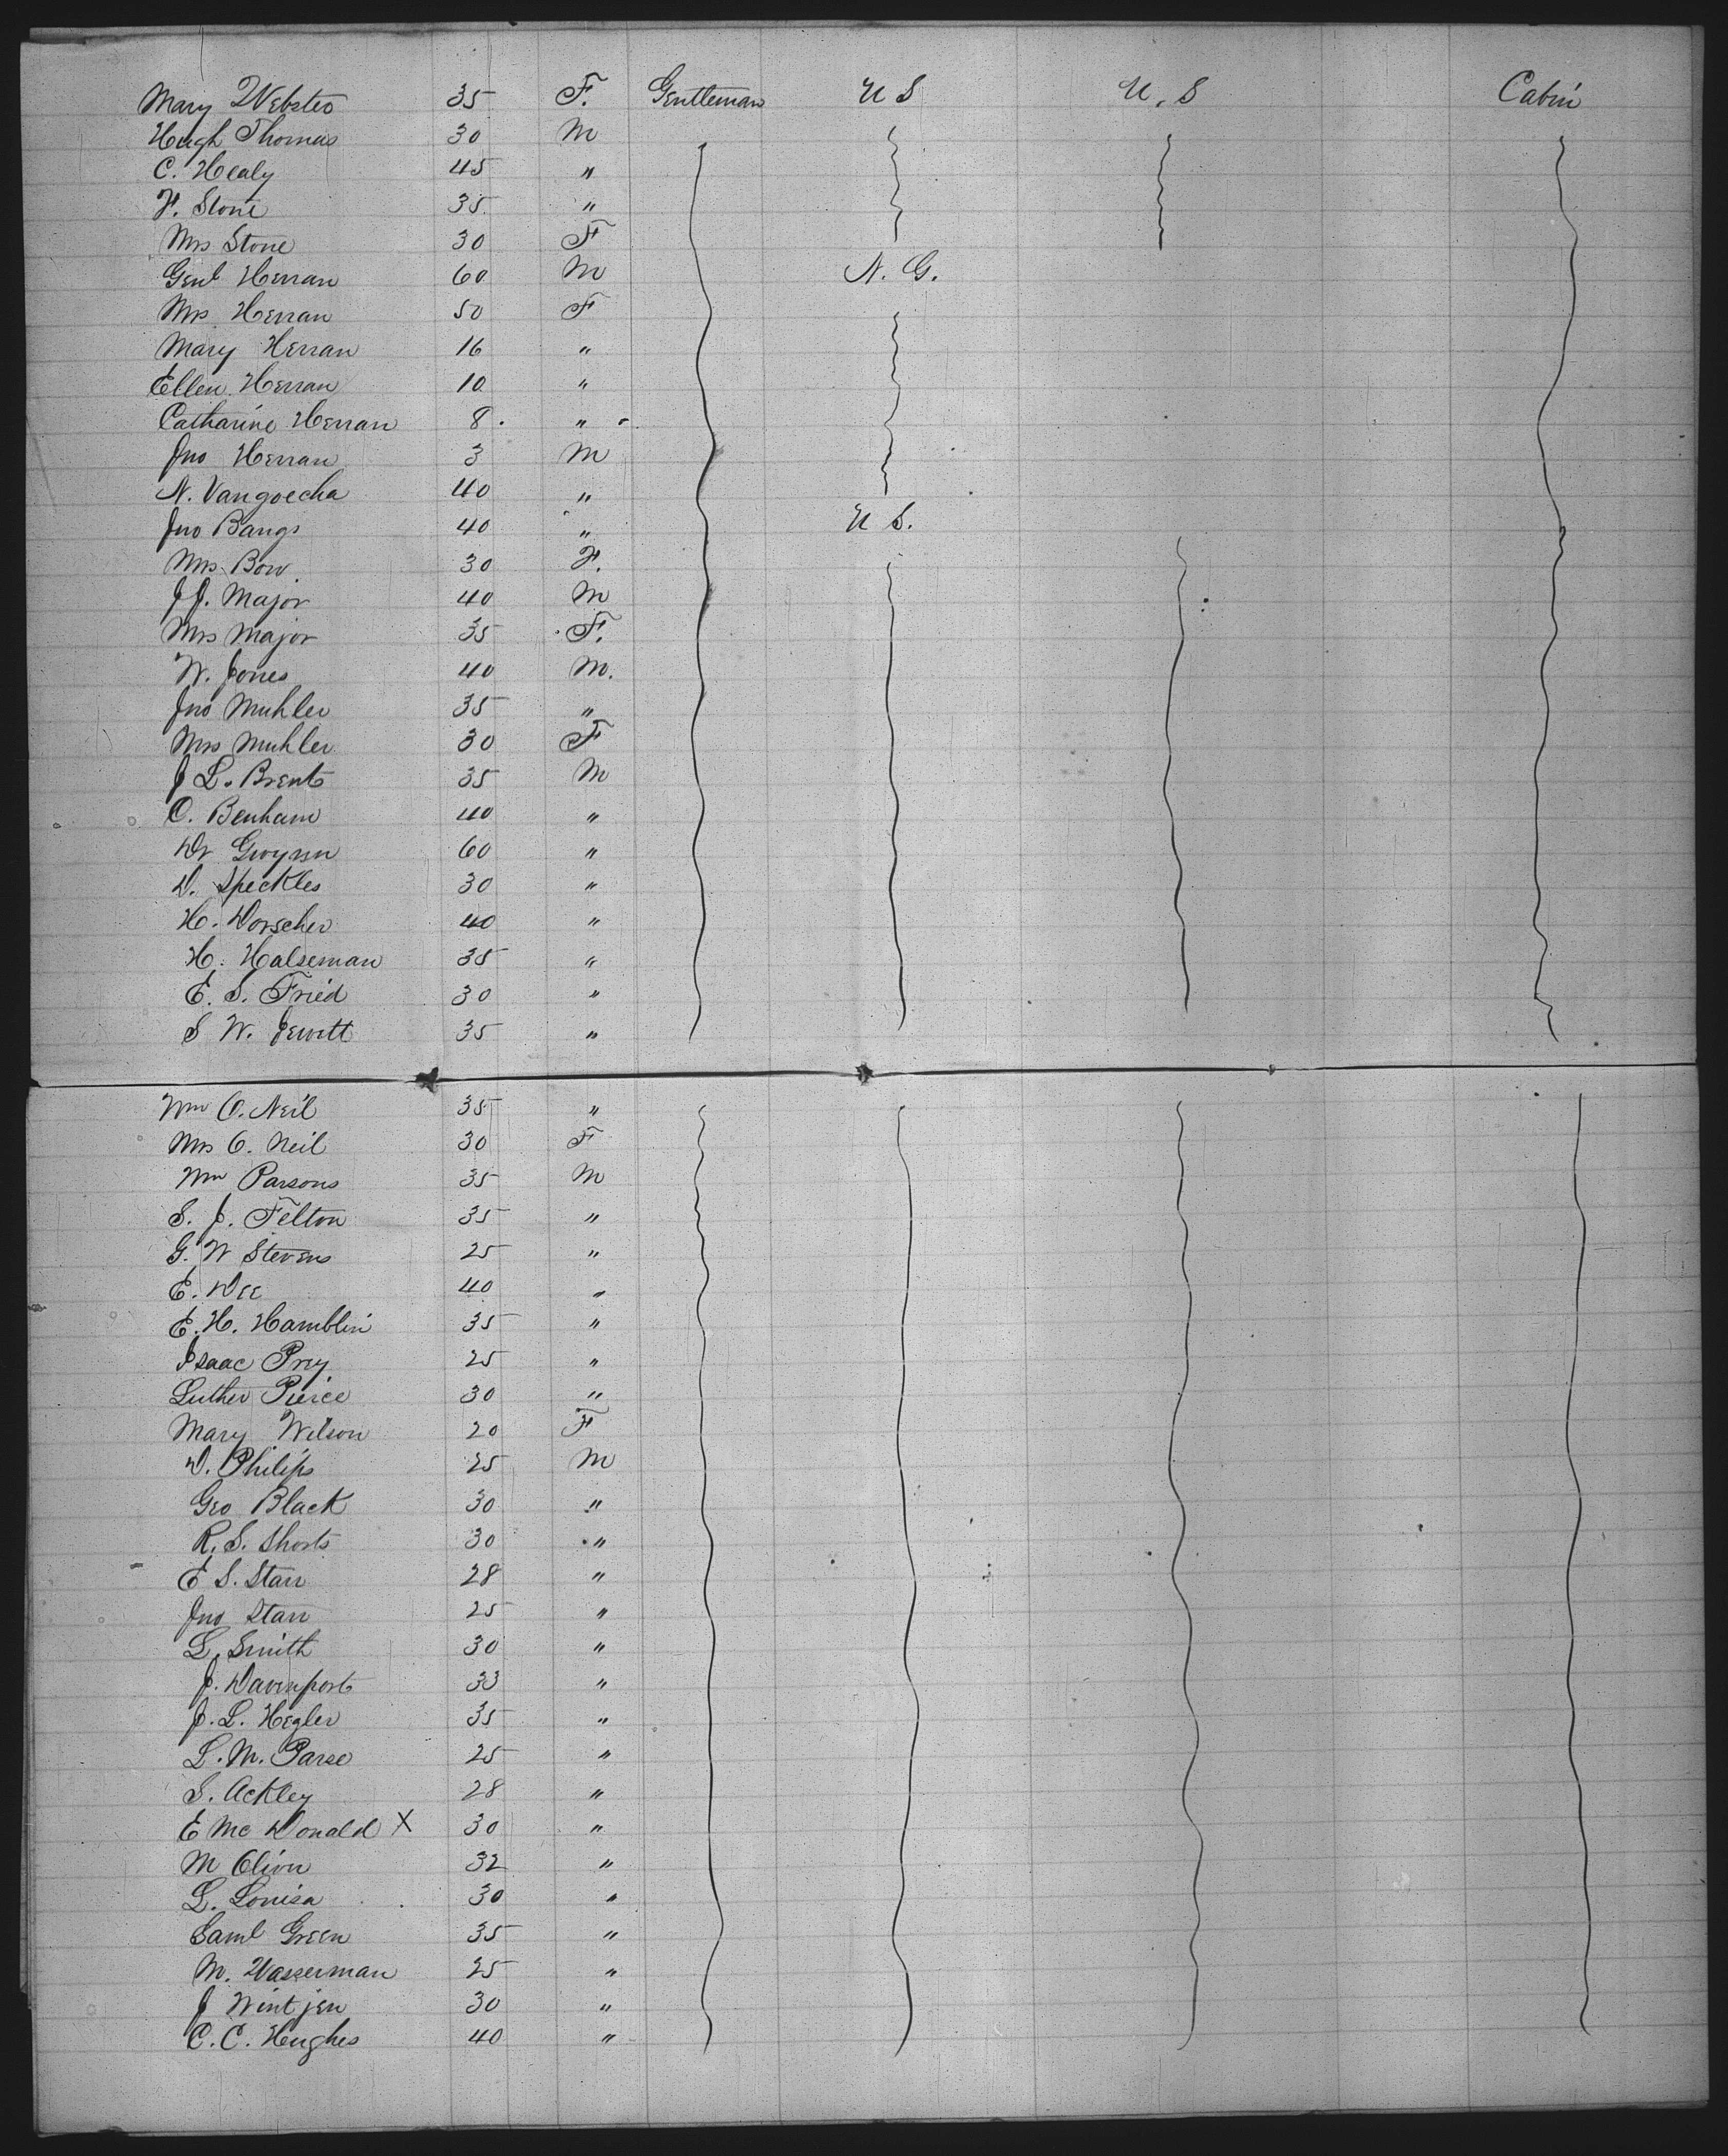 Mary Webster 35 F. Gentleman U S U. S Cabin
Hugh Thomas 30 M
C. Healy 45 "
F. Stone 35 "
Mrs Stone 30 F
Genl Herran 60 M N. G.
Mrs Herran 50 F
Mary Herran 16 "
Ellen Herran 10 "
Catharine Herran 8 "
Jno Herran 3 M
N. Vangoecha 40 "
Jno Bangs 40 " U S.
Mrs Bow 30 F.
J J. Major 40 M
Mrs Major 35 F.
W. Jones 40 M.
Jno Muhler 35 "
Mrs Muhler 30 F
J L. Brent 35 M
C. Benham 40 "
Dr Gwynn 60 "
D. Speckles 30 "
H. Dorscher 40 "
H. Halseman 35 "
E. S. Fried 30 "
S W. Jewett 35 "
Wm O. Neil 35 "
Mrs O. Neil 30 F
Wm Parsons 35 M
S. J. Felton 35 "
G. W Stevens 25 "
E. Dee 40 "
E. H. Hamblin 35 "
Isaac Pray 25 "
Luther Pierce 30 "
Mary Wilson 20 F
D. Philips 25 M
Geo Black 30 "
R. S. Shorts 30 "
E S. Starr 28 "
Jno Starr 25 "
L. Smith 30 "
J. Davenport 33 "
J. L. Hegler 35 "
L. M. Parse 25 "
S. Ackley 28 "
E Mc Donald X 30 "
M Olion 32 "
L. Louisa 30 "
Saml Green 35 "
M. Wasserman 25 "
J Wintjen 30 "
C. C. Hughes 40 "